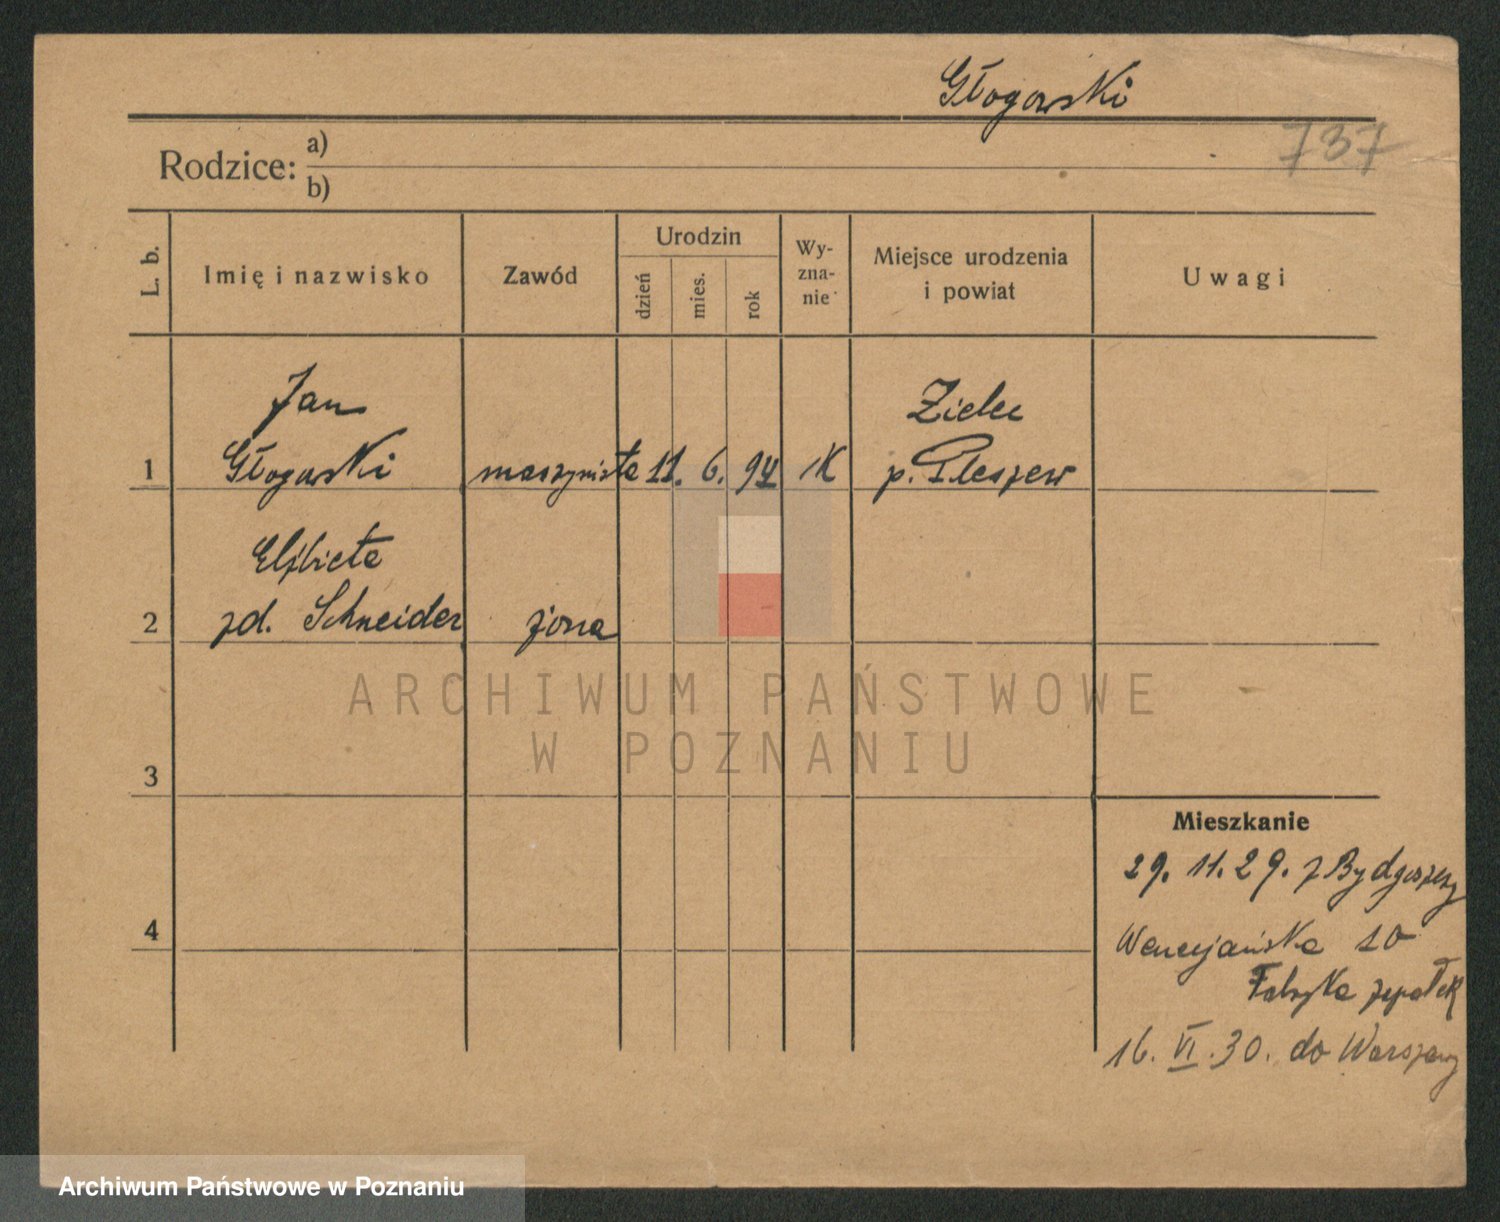 Głogowski
737
Rodzice: a)
b)
L. b.
Imię i nazwisko
Zawód
Urodzin
dzień
mies.
rok
Wy-
zna-
nie
Miejsce urodzenia
i powiat
Uwagi
1
Jan
Głogowski
maszynista
11. 6. 94
rK
p. Pleszew
2
Elżbieta
zd. Schneider
żona
3
4
Mieszkanie
29. 11. 29. z Bydgoszczy
Wenecjańska 10
Fabryka zapałek
16. VI. 30. do Warszawy
ARCHIWUM PAŃSTWOWE
W POZNANIU
Archiwum Państwowe w Poznaniu